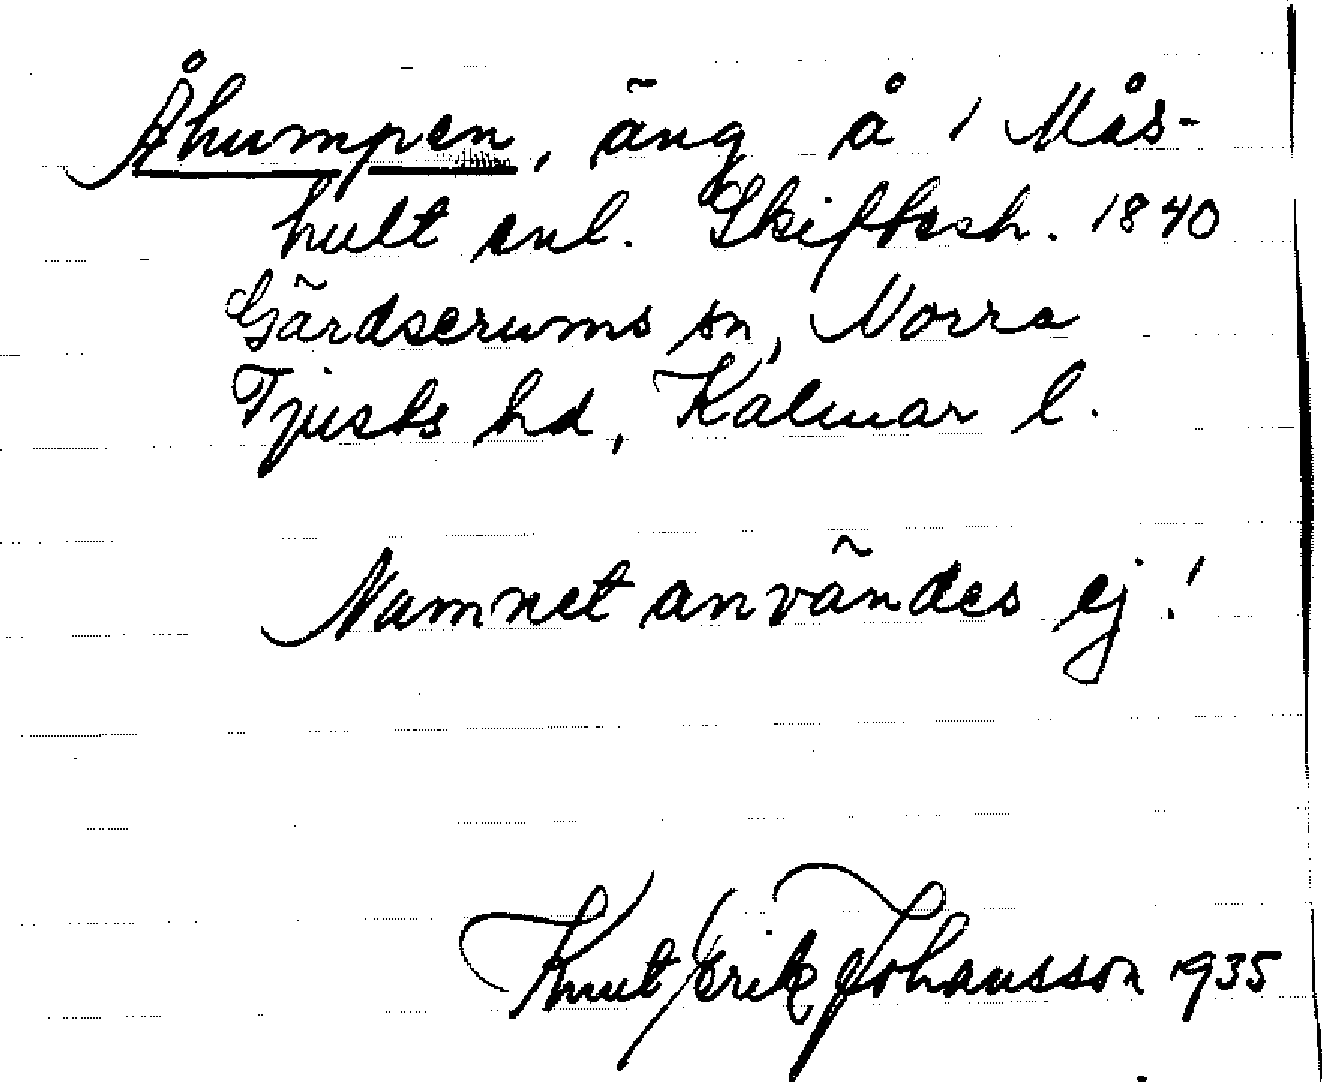 Åhumpen, äng å 1 Mås-
hult enl. Skiftesh. 1840
Gärdserums sn, Norra
Tjusts hd, Kalmar l.
Namnet användes ej!
Knut Erik Johansson 1935